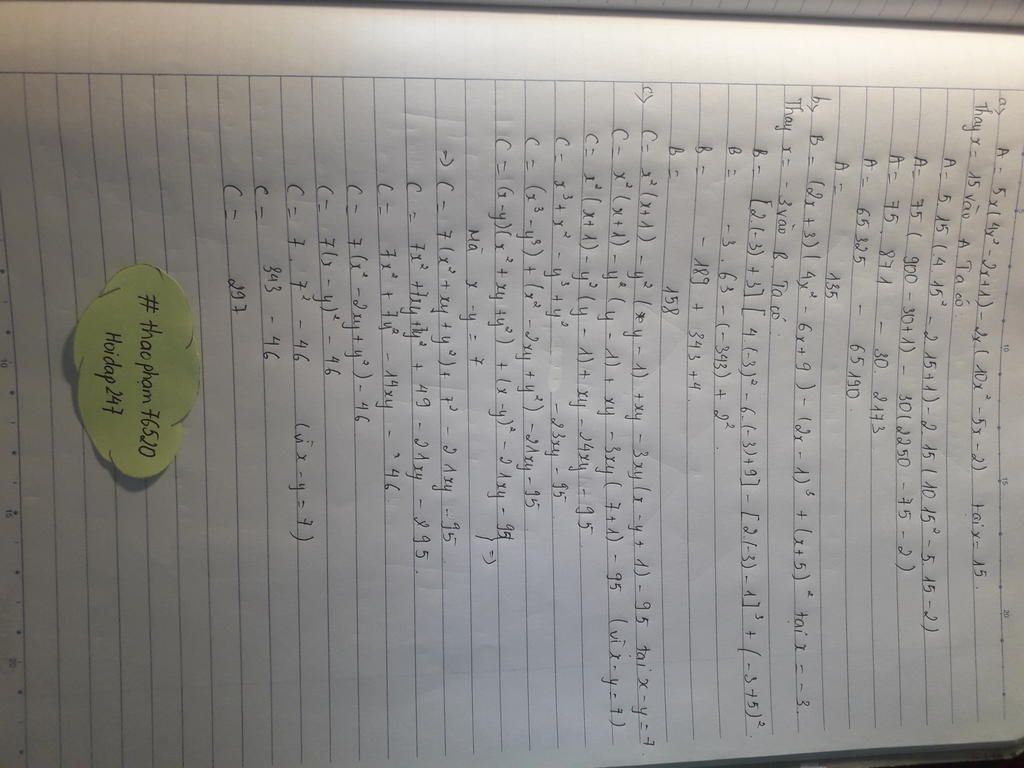 a) A = 5x(4x² - 2x+1) - 2x(10x² - 5x - 2) tại x = 15.
Thay x = 15 vào A. Ta có:
A = 5.15(4.15² - 2.15+1) - 2.15(10.15² - 5.15 - 2)
A = 75(900 - 30+1) - 30(2250 - 75 - 2)
A = 75.871 - 30.2173
A = 65325 - 65190
A = 135
b) B = (2x + 3)(4x² - 6x + 9) - (2x - 1)³ + (x+5)² tại x = -3.
Thay x = -3 vào B. Ta có:
B = [2.(-3) + 3][4.(-3)² - 6.(-3)+9] - [2.(-3) - 1]³ + (-3+5)².
B = -3.63 - (-343) + 2².
B = -189 + 343 + 4.
B = 158
c) C = x²(x+1) - y²(y - 1) + xy - 3xy(x - y + 1) - 95 tại x - y = 7.
C = x²(x+1) - y²(y - 1) + xy - 3xy(7+1) - 95 (vì x - y = 7)
C = x²(x+1) - y²(y - 1) + xy - 24xy - 95
C = x³ + x² - y³ + y² - 23xy - 95.
C = (x³ - y³) + (x² - 2xy + y²) - 21xy - 95
C = (x - y)(x² + xy + y²) + (x - y)² - 21xy - 95 } =>
Mà x - y = 7
=> C = 7(x² + xy + y²) + 7² - 21xy - 95
C = 7x² + 7xy + 7y² + 49 - 21xy - 95.
C = 7x² + 7y² - 14xy - 46.
C = 7(x² - 2xy + y²) - 46
C = 7(x - y)² - 46
C = 7.7² - 46 (vì x - y = 7)
C = 343 - 46
C = 297
# thaophạm76520
Hoidap247